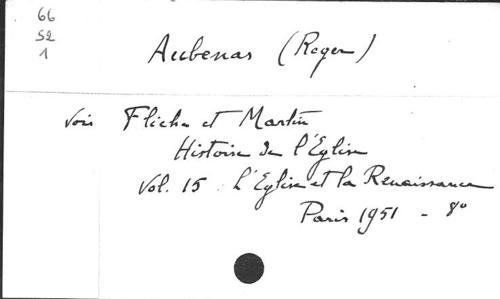 66
52
1
Aubenas (Roger)
Voir Fliche et Martin
Histoire de l'Eglise
Vol. 15 : L'Eglise et la Renaissance
Paris 1951 - 8°